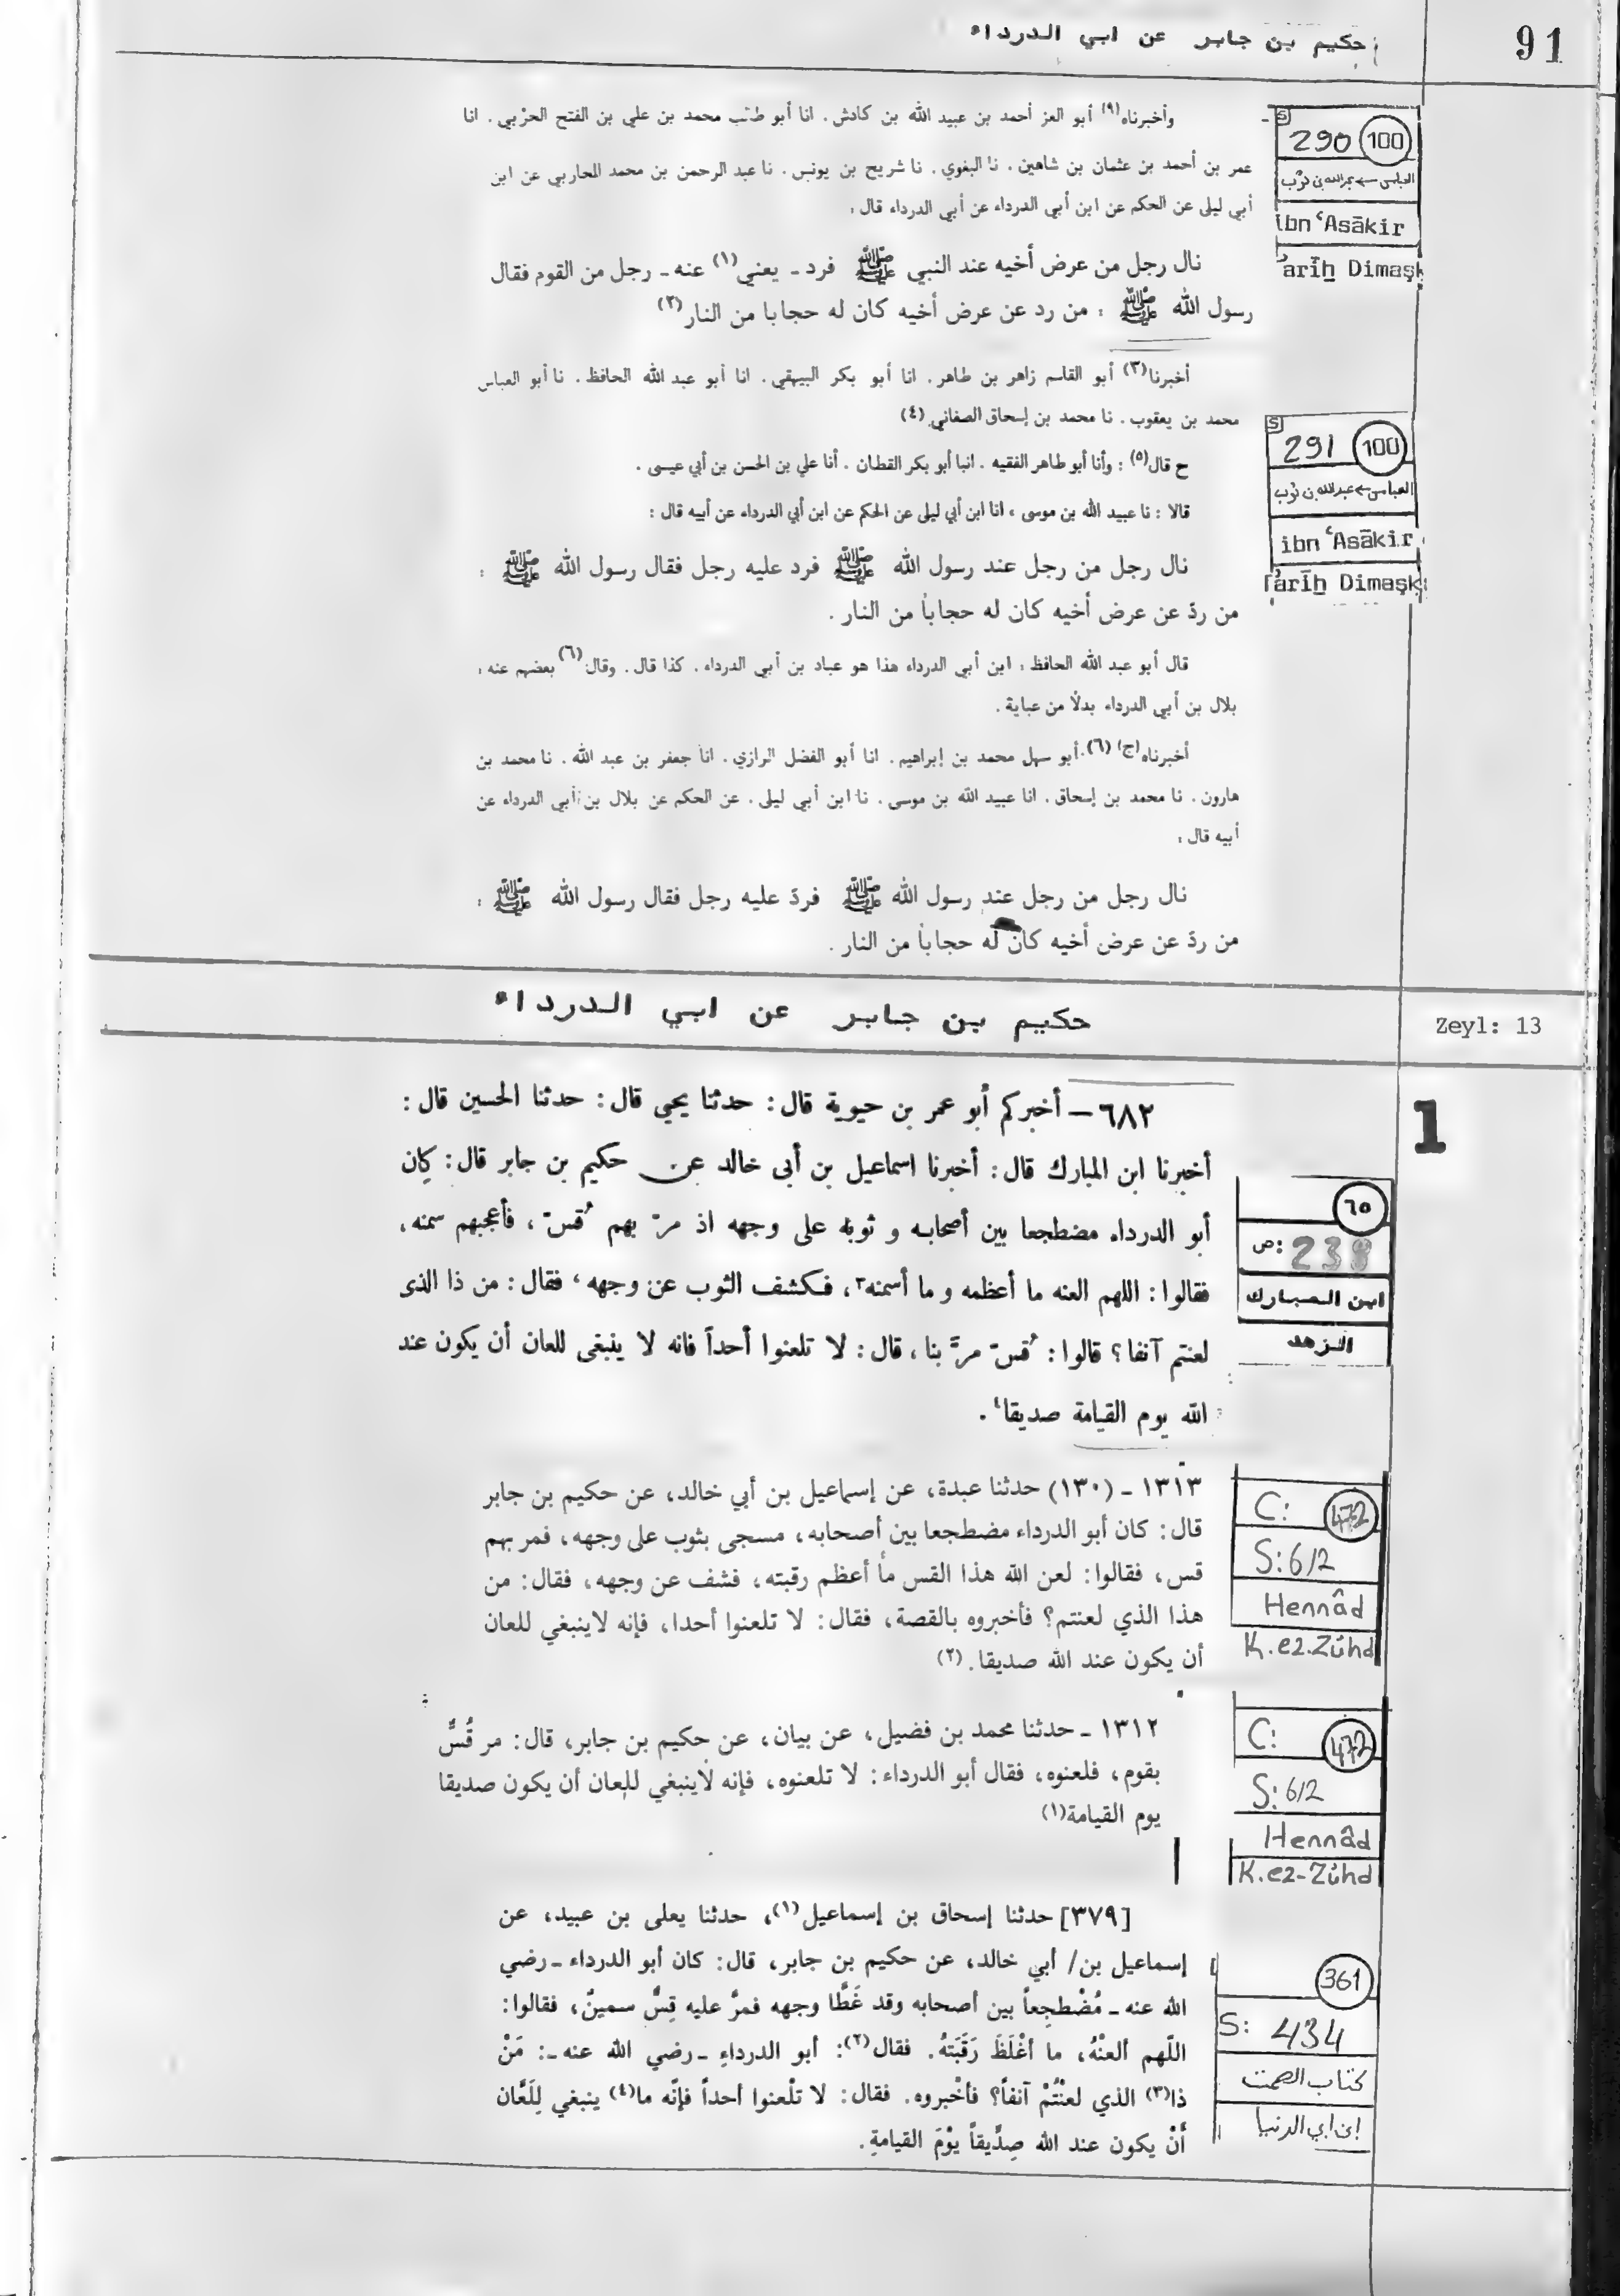 حكيم بن جابر عن ابي الدرداء
91
وأخبرناه(٩) أبو العز أحمد بن عبيد الله بن كادش . انا أبو طالب محمد بن علي بن الفتح الحربي . انا
عمر بن أحمد بن عثمان بن شاهين . نا البغوي . نا شريح بن يونس . نا عبد الرحمن بن محمد المحاربي عن ابن
أبي ليلى عن الحكم عن ابن أبي الدرداء عن أبي الدرداء قال :
نال رجل من عرض أخيه عند النبي ﷺ فرد ـ يعني(١) عنه ـ رجل من القوم فقال
رسول الله ﷺ : من رد عن عرض أخيه كان له حجابا من النار(٢)
S
290 100
العباس ← عبدالله بن ثوب
ibn ʿAsākir
arīḫ Dimaşḳ
أخبرنا(٣) أبو القاسم زاهر بن طاهر . انا أبو بكر البيهقي . انا أبو عبد الله الحافظ . نا أبو العباس
محمد بن يعقوب . نا محمد بن إسحاق الصغاني (٤)
ح قال(٥) : وأنا أبو طاهر الفقيه . انبا أبو بكر القطان . أنا علي بن الحسن بن أبي عيسى .
قالا : نا عبيد الله بن موسى ، انا ابن أبي ليلى عن الحكم عن ابن أبي الدرداء عن أبيه قال :
نال رجل من رجل عند رسول الله ﷺ فرد عليه رجل فقال رسول الله ﷺ :
من ردّ عن عرض أخيه كان له حجاباً من النار .
S
291 100
العباس ← عبدالله بن ثوب
ibn ʿAsākir
Tʾarīḫ Dimaşḳ
قال أبو عبد الله الحافظ : ابن أبي الدرداء هذا هو عباد بن أبي الدرداء . كذا قال . وقال(٦) بعضهم عنه :
بلال بن أبي الدرداء بدلاً من عباية .
أخبرناه(ج) (٦) أبو سهل محمد بن إبراهيم . انا أبو الفضل الرازي . انا جعفر بن عبد الله . نا محمد بن
هارون . نا محمد بن إسحاق . انا عبيد الله بن موسى . نا ابن أبي ليلى . عن الحكم عن بلال بن أبي الدرداء عن
أبيه قال :
نال رجل من رجل عند رسول الله ﷺ فردّ عليه رجل فقال رسول الله ﷺ :
من ردّ عن عرض أخيه كان له حجاباً من النار .
حكيم بن جابر عن ابي الدرداء
Zeyl: 13
1
٦٨٢ – أخبركم أبو عمر بن حيوية قال : حدثنا يحيى قال : حدثنا الحسين قال :
أخبرنا ابن المبارك قال : أخبرنا اسماعيل بن أبى خالد عن حكيم بن جابر قال : كان
أبو الدرداء مضطجعا بين أصحابه و ثوبه على وجهه اذ مرّ بهم قُسّ ، فأعجبهم سمنه ،
فقالوا : اللهم العنه ما أعظمه و ما أسمنه٣ ، فكشف الثوب عن وجهه ، فقال : من ذا الذى
لعنتم آنفا ؟ قالوا : قُسّ مرَّ بنا ، قال : لا تلعنوا أحداً فانه لا ينبغى للعان أن يكون عند
الله يوم القيامة صديقا٤ .
٦٥
ص: 238
ابن المبارك
الزهد
١٣١٣ ـ (١٣٠) حدثنا عبدة، عن إسماعيل بن أبي خالد، عن حكيم بن جابر
قال: كان أبو الدرداء مضطجعا بين أصحابه، مسجى بثوب على وجهه، فمر بهم
قس، فقالوا: لعن الله هذا القس ما أعظم رقبته، فشف عن وجهه، فقال: من
هذا الذي لعنتم؟ فأخبروه بالقصة، فقال: لا تلعنوا أحدا، فإنه لاينبغي للعان
أن يكون عند الله صديقا. (٢)
C: 472
S: 612
Hennâd
K.ez.Zühd
١٣١٢ ـ حدثنا محمد بن فضيل، عن بيان، عن حكيم بن جابر، قال: مر قُسٌّ
بقوم، فلعنوه، فقال أبو الدرداء: لا تلعنوه، فإنه لاينبغي للعان أن يكون صديقا
يوم القيامة(١)
C: 472
S: 612
Hennâd
K.ez-Zühd
[٣٧٩] حدثنا إسحاق بن إسماعيل(١)، حدثنا يعلى بن عبيد، عن
إسماعيل بن/ أبي خالد، عن حكيم بن جابر، قال: كان أبو الدرداء ـ رضي
الله عنه ـ مُضْطجِعاً بين أصحابه وقد غَطَّا وجهه فمرَّ عليه قِسٌّ سمينٌ، فقالوا:
اللّهم ألعنْهُ، ما أغْلَظَ رَقَبَتهُ. فقال(٢): أبو الدرداءِ ـ رضي الله عنه ـ: مَنْ
ذا(٣) الذي لعنْتُمْ آنفاً؟ فأخْبروه. فقال: لا تلْعنوا أحداً فإنّه ما(٤) ينبغي لِلَعَّان
أَنْ يكون عند الله صِدِّيقاً يوْمَ القيامةِ.
361
S: 434
كتاب الصمت
ابن ابي الدنيا